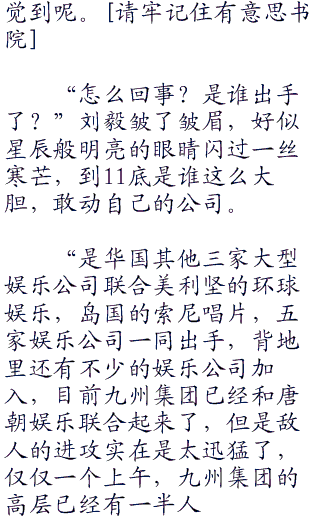 觉到呢。[请牢记住有意思书
院]
“怎么回事？是谁出手
了？”刘毅皱了皱眉，好似
星辰般明亮的眼睛闪过一丝
寒芒，到11底是谁这么大
胆，敢动自己的公司。
“是华国其他三家大型
娱乐公司联合美利坚的环球
娱乐，岛国的索尼唱片，五
家娱乐公司一同出手，背地
里还有不少的娱乐公司加
入，目前九州集团已经和唐
朝娱乐联合起来了，但是敌
人的进攻实在是太迅猛了，
仅仅一个上午，九州集团的
高层已经有一半人